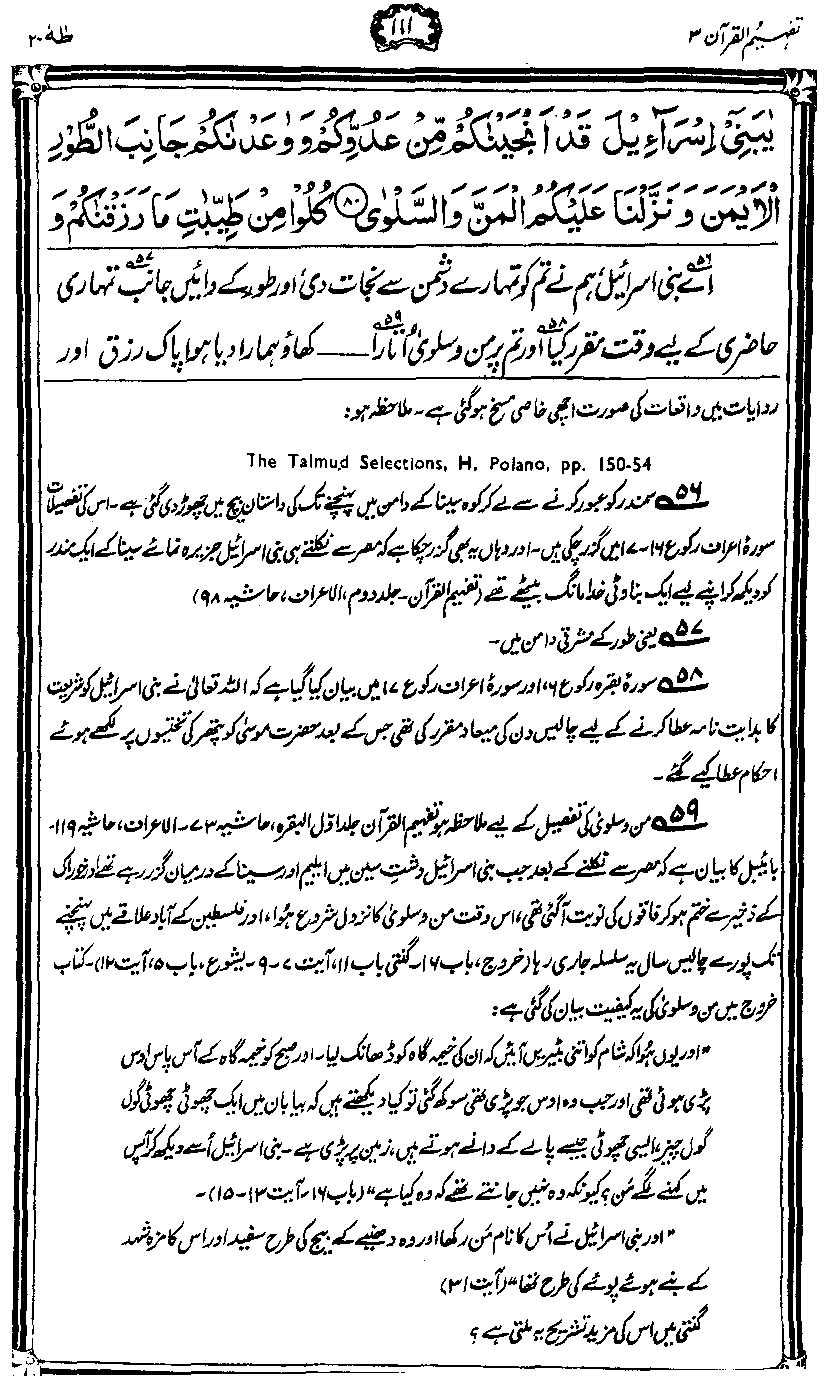 تفہیم القرآن ۳
۱۱۱
طٰهٰ ۲۰
يٰبَنِيْۤ اِسْرَآءِيْلَ قَدْ اَنْجَيْنٰكُمْ مِّنْ عَدُوِّكُمْ وَوٰعَدْنٰكُمْ جَانِبَ الطُّوْرِ
الْاَيْمَنَ وَنَزَّلْنَا عَلَيْكُمُ الْمَنَّ وَالسَّلْوٰى ۸۰ كُلُوْا مِنْ طَيِّبٰتِ مَا رَزَقْنٰكُمْ وَ
اے بنی اسرائیل،۵۶ ہم نے تم کو تمہارے دشمن سے نجات دی، اور طور کے دائیں جانب۵۷ تمہاری
حاضری کے لیے وقت مقرر کیا۵۸ اور تم پر من و سلویٰ اُتارا۵۹ ــــ کھاؤ ہمارا دیا ہوا پاک رزق اور
روایات میں واقعات کی صورت اچھی خاصی مسخ ہو گئی ہے۔ ملاحظہ ہو:
The Talmud Selections, H. Polano, pp. 150-54
۵۶ سمندر کو عبور کرنے سے لے کر کوہ سینا کے دامن میں پہنچنے تک کی داستان بیچ میں چھوڑ دی گئی ہے۔ اس کی تفصیلات
سورۂ اعراف رکوع ۱۶-۱۷ میں گزر چکی ہیں۔ اور وہاں یہ بھی گزر چکا ہے کہ مصر سے نکلتے ہی بنی اسرائیل جزیرہ نمائے سینا کے ایک مندر
کو دیکھ کر اپنے لیے ایک بناوٹی خدا مانگ بیٹھے تھے (تفہیم القرآن۔ جلد دوم، الاعراف، حاشیہ ۹۸)
۵۷ یعنی طور کے مشرقی دامن میں۔
۵۸ سورۂ بقرہ رکوع ۶، اور سورۂ اعراف رکوع ۱۷ میں بیان کیا گیا ہے کہ اللہ تعالیٰ نے بنی اسرائیل کو شریعت
کا ہدایت نامہ عطا کرنے کے لیے چالیس دن کی میعاد مقرر کی تھی جس کے بعد حضرت موسیٰ کو پتھر کی تختیوں پر لکھے ہوئے
احکام عطا کیے گئے۔
۵۹ من و سلویٰ کی تفصیل کے لیے ملاحظہ ہو تفہیم القرآن جلد اوّل البقرہ، حاشیہ ۷۳۔ الاعراف، حاشیہ ۱۱۹۔
بائیبل کا بیان ہے کہ مصر سے نکلنے کے بعد جب بنی اسرائیل دشتِ سین میں ایلیم اور سینا کے درمیان گزر رہے تھے اور خوراک
کے ذخیرے ختم ہو کر فاقوں کی نوبت آگئی تھی، اس وقت من و سلویٰ کا نزول شروع ہُوا، اور فلسطین کے آباد علاقے میں پہنچنے
تک پورے چالیس سال یہ سلسلہ جاری رہا (خروج، باب ۱۶۔ گنتی باب ۱۱، آیت ۷-۹۔ یشوع، باب ۵، آیت ۱۲)۔ کتاب
خروج میں من و سلویٰ کی یہ کیفیت بیان کی گئی ہے:
"اور یوں ہُوا کہ شام کو اتنی بٹیریں آئیں کہ ان کی خیمہ گاہ کو ڈھانک لیا۔ اور صبح کو خیمہ گاہ کے آس پاس اوس
پڑی ہوئی تھی اور جب وہ اوس جو پڑی تھی سوکھ گئی تو کیا دیکھتے ہیں کہ بیابان میں ایک چھوٹی چھوٹی گول
گول چیز، ایسی چھوٹی جیسے پالے کے دانے ہوتے ہیں، زمین پر پڑی ہے۔ بنی اسرائیل اُسے دیکھ کر آپس
میں کہنے لگے مَن؟ کیونکہ وہ نہیں جانتے تھے کہ وہ کیا ہے" (باب ۱۶۔ آیت ۱۳-۱۵)۔
"اور بنی اسرائیل نے اُس کا نام مَن رکھا اور وہ دھنیے کے بیج کی طرح سفید اور اس کا مزہ شہد
کے بنے ہوئے پوئے کی طرح تھا" (آیت ۳۱)
گنتی میں اس کی مزید تشریح یہ ملتی ہے؟